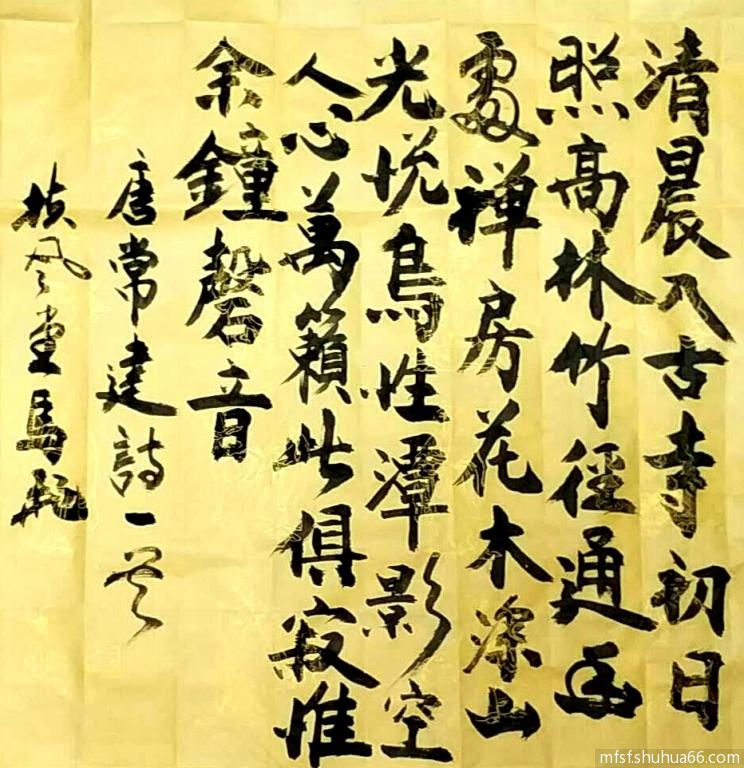 清晨入古寺初日
照高林竹徑通幽
處禅房花木深山
光悦鳥性潭影空
人心萬籟此俱寂惟
余鐘磬音
唐常建詩一首
扶风堂馬
mfsf.shuhua66.com